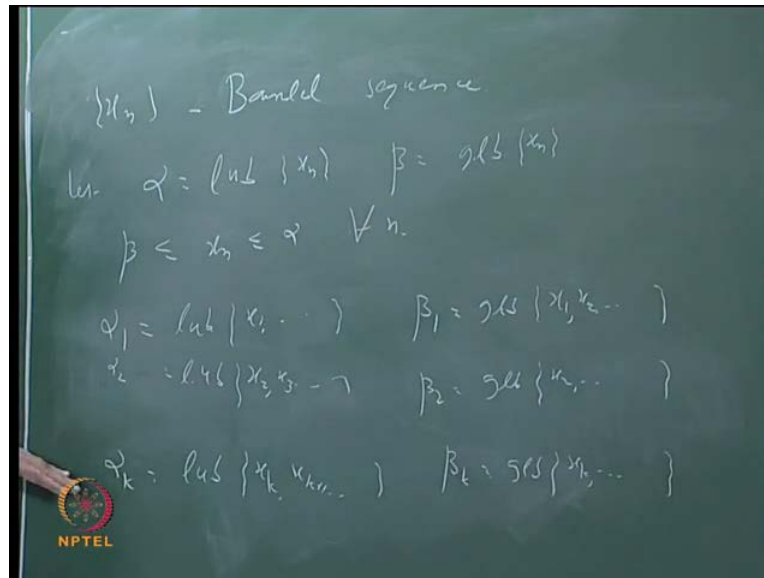 {xn} - Bounded sequence
Let α = lub {xn} β = glb {xn}
β ≤ xn ≤ α ∀ n.
α1 = lub {x1, ... } β1 = glb {x1, x2, ... }
α2 = l.u.b {x2, x3, ... } β2 = glb {x2, ... }
αk = lub {xk, xk+1, ... } βk = glb {xk, ... }
NPTEL